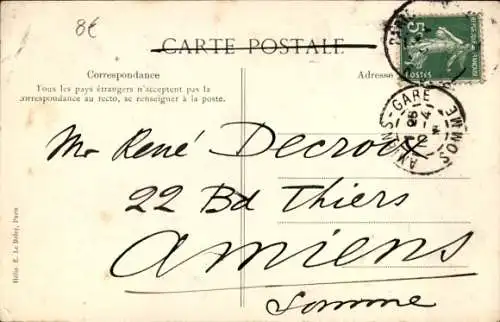 8€
CARTE POSTALE
Correspondance
Tous les pays étrangers n'acceptent pas la
correspondance au recto, se renseigner à la poste.
Adresse
5
POSTES
AMIENS-GARE
SOMME
Mr René Decroix
22 Bd Thiers
Amiens
Somme
Hélio. E. Le Deley, Paris